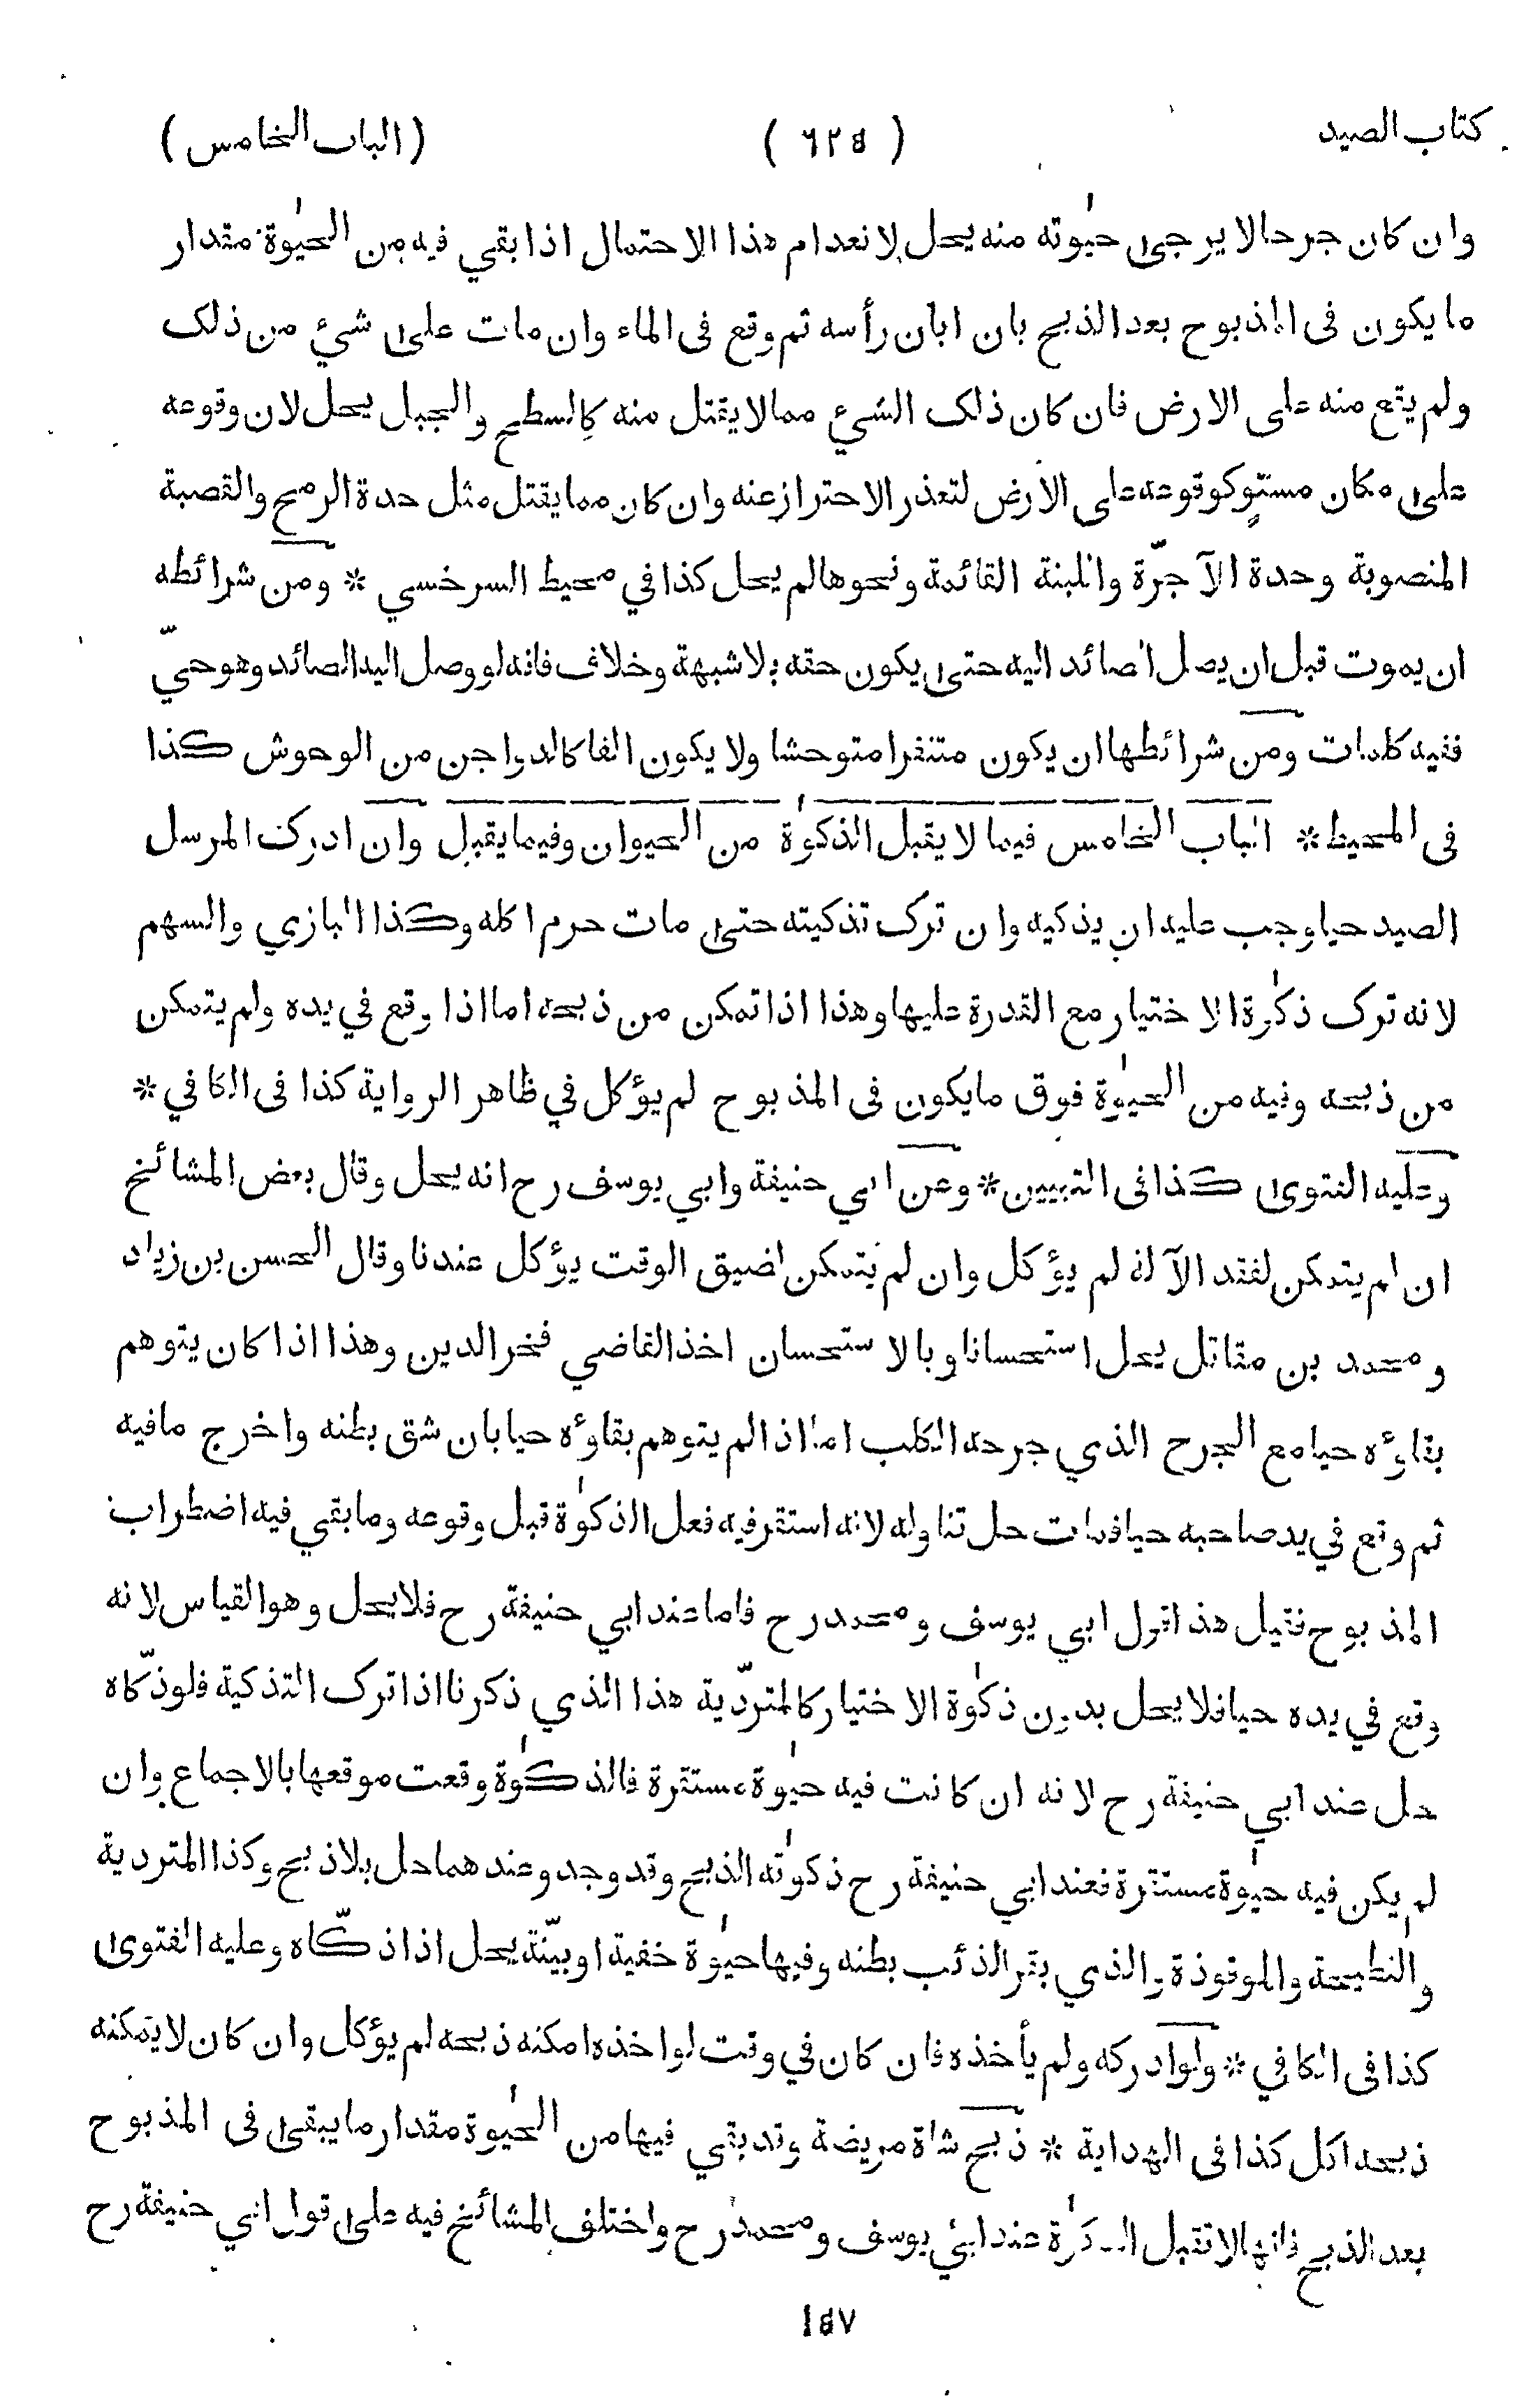 كتاب الصيد ( ٦٢٥ ) (الباب الخامس)
وان كان جرحا لا يرجى حيٰوته منه يحل لانعدام هذا الاحتمال اذا بقي فيه من الحيٰوة مقدار
ما يكون فى المذبوح بعد الذبح بان ابان رأسه ثم وقع فى الماء وان مات على شئ من ذلك
ولم يقع منه على الارض فان كان ذلك الشيء مما لا يقتل منه كالسطح والجبل يحل لان وقوعه
على مكان مستوٍ كوقوعه على الارض لتعذر الاحتراز عنه وان كان مما يقتل مثل حدة الرمح والقصبة
المنصوبة وحدة الآجرّة واللبنة القائمة ونحوها لم يحل كذا في محيط السرخسي * ومن شرائطه
ان يموت قبل ان يصل الصائد اليه حتى يكون حقه بلا شبهة وخلاف فانه لو وصل اليه الصائد وهو حيّ
ففيه كلمات ومن شرائطها ان يكون متنفرا متوحشا ولا يكون الفا كالدواجن من الوحوش كذا
فى المحيط * الباب الخامس فيما لا يقبل الذكٰوة من الحيوان وفيما يقبل وان ادرك المرسل
الصيد حيا وجب عليه ان يذكيه وان ترك تذكيته حتى مات حرم اكله وكذا البازي والسهم
لانه ترك ذكٰوة الاختيار مع القدرة عليها وهذا اذا تمكن من ذبحه اما اذا وقع في يده ولم يتمكن
من ذبحه وفيه من الحيٰوة فوق ما يكون فى المذبوح لم يؤكل في ظاهر الرواية كذا فى الكافي *
وعليه الفتوى كذا فى التبيين * وعن ابي حنيفة وابي يوسف رح انه يحل وقال بعض المشائخ
ان لم يتمكن لفقد الآلة لم يؤكل وان لم يتمكن لضيق الوقت يؤكل عندنا وقال الحسن بن زياد
ومحمد بن مقاتل يحل استحسانا وبالاستحسان اخذ القاضي فخر الدين وهذا اذا كان يتوهم
بقاؤه حيا مع الجرح الذي جرحه الكلب اما اذا لم يتوهم بقاؤه حيا بان شق بطنه واخرج مافيه
ثم وقع في يد صاحبه حيا فمات حل تناوله لانه استقر فيه فعل الذكٰوة قبل وقوعه وما بقي فيه اضطراب
المذبوح فقيل هذا قول ابي يوسف ومحمد رح فاما عند ابي حنيفة رح فلا يحل وهو القياس لانه
وقع في يده حيا فلا يحل بدون ذكٰوة الاختيار كالمتردّية هذا الذي ذكرنا اذا ترك التذكية فلو ذكّاه
حل عند ابي حنيفة رح لانه ان كانت فيه حيٰوة مستقرة فالذكٰوة وقعت موقعها بالاجماع وان
لم يكن فيه حيٰوة مستقرة فعند ابي حنيفة رح ذكٰوته الذبح وقد وجد وعندهما حل بلا ذبح وكذا المتردية
والنطيحة والموقوذة والذي بقر الذئب بطنه وفيها حيٰوة خفية او بيّنة يحل اذا ذكّاه وعليه الفتوى
كذا فى الكافي * ولو ادركه ولم يأخذه فان كان في وقت لو اخذه امكنه ذبحه لم يؤكل وان كان لا يمكنه
ذبحه اكل كذا فى الهداية * ذبح شاة مريضة وقد بقي فيها من الحيٰوة مقدار ما يبقى فى المذبوح
بعد الذبح فانها لا تقبل الذكٰوة عند ابي يوسف ومحمد رح واختلف المشائخ فيه على قول ابي حنيفة رح
١٥٧